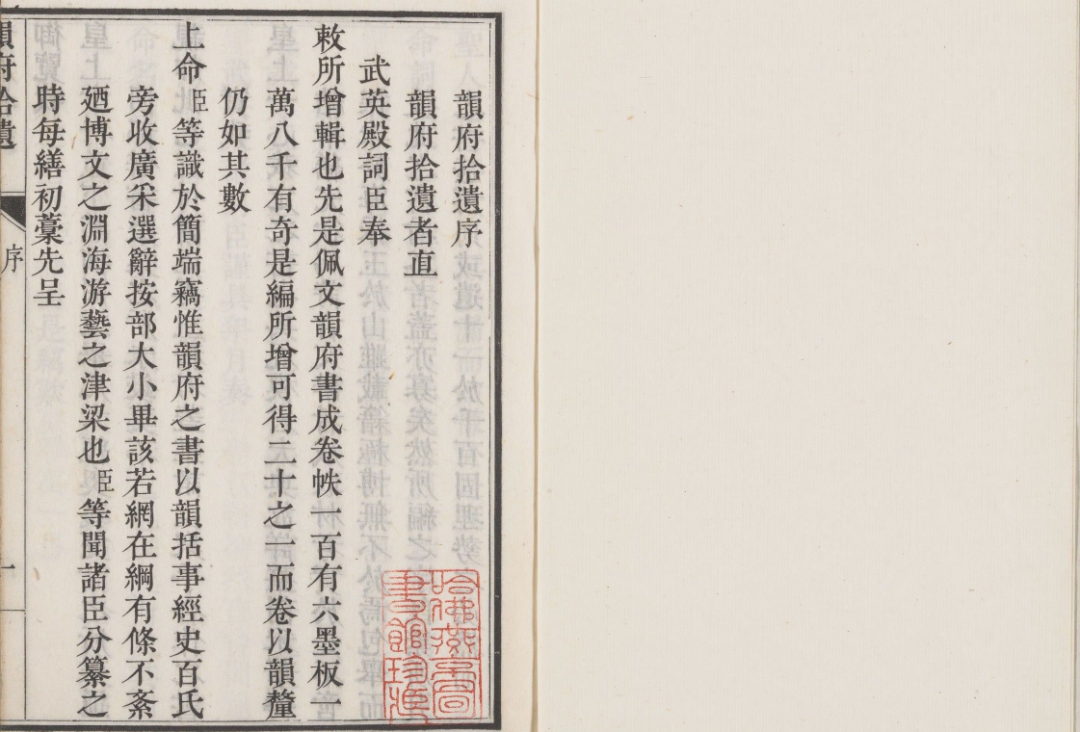 韻府拾遺序
韻府拾遺者直
武英殿詞臣奉
敕所增輯也先是佩文韻府書成卷帙一百有六墨板一
萬八千有奇是編所增可得二十之一而卷以韻釐
仍如其數
上命臣等識於簡端竊惟韻府之書以韻括事經史百氏
旁收廣采選辭按部大小畢該若網在綱有條不紊
廼博文之淵海游藝之津梁也臣等聞諸臣分纂之
時每繕初藁先呈
韻府拾遺
序
一
哈佛燕京圖書館珍藏